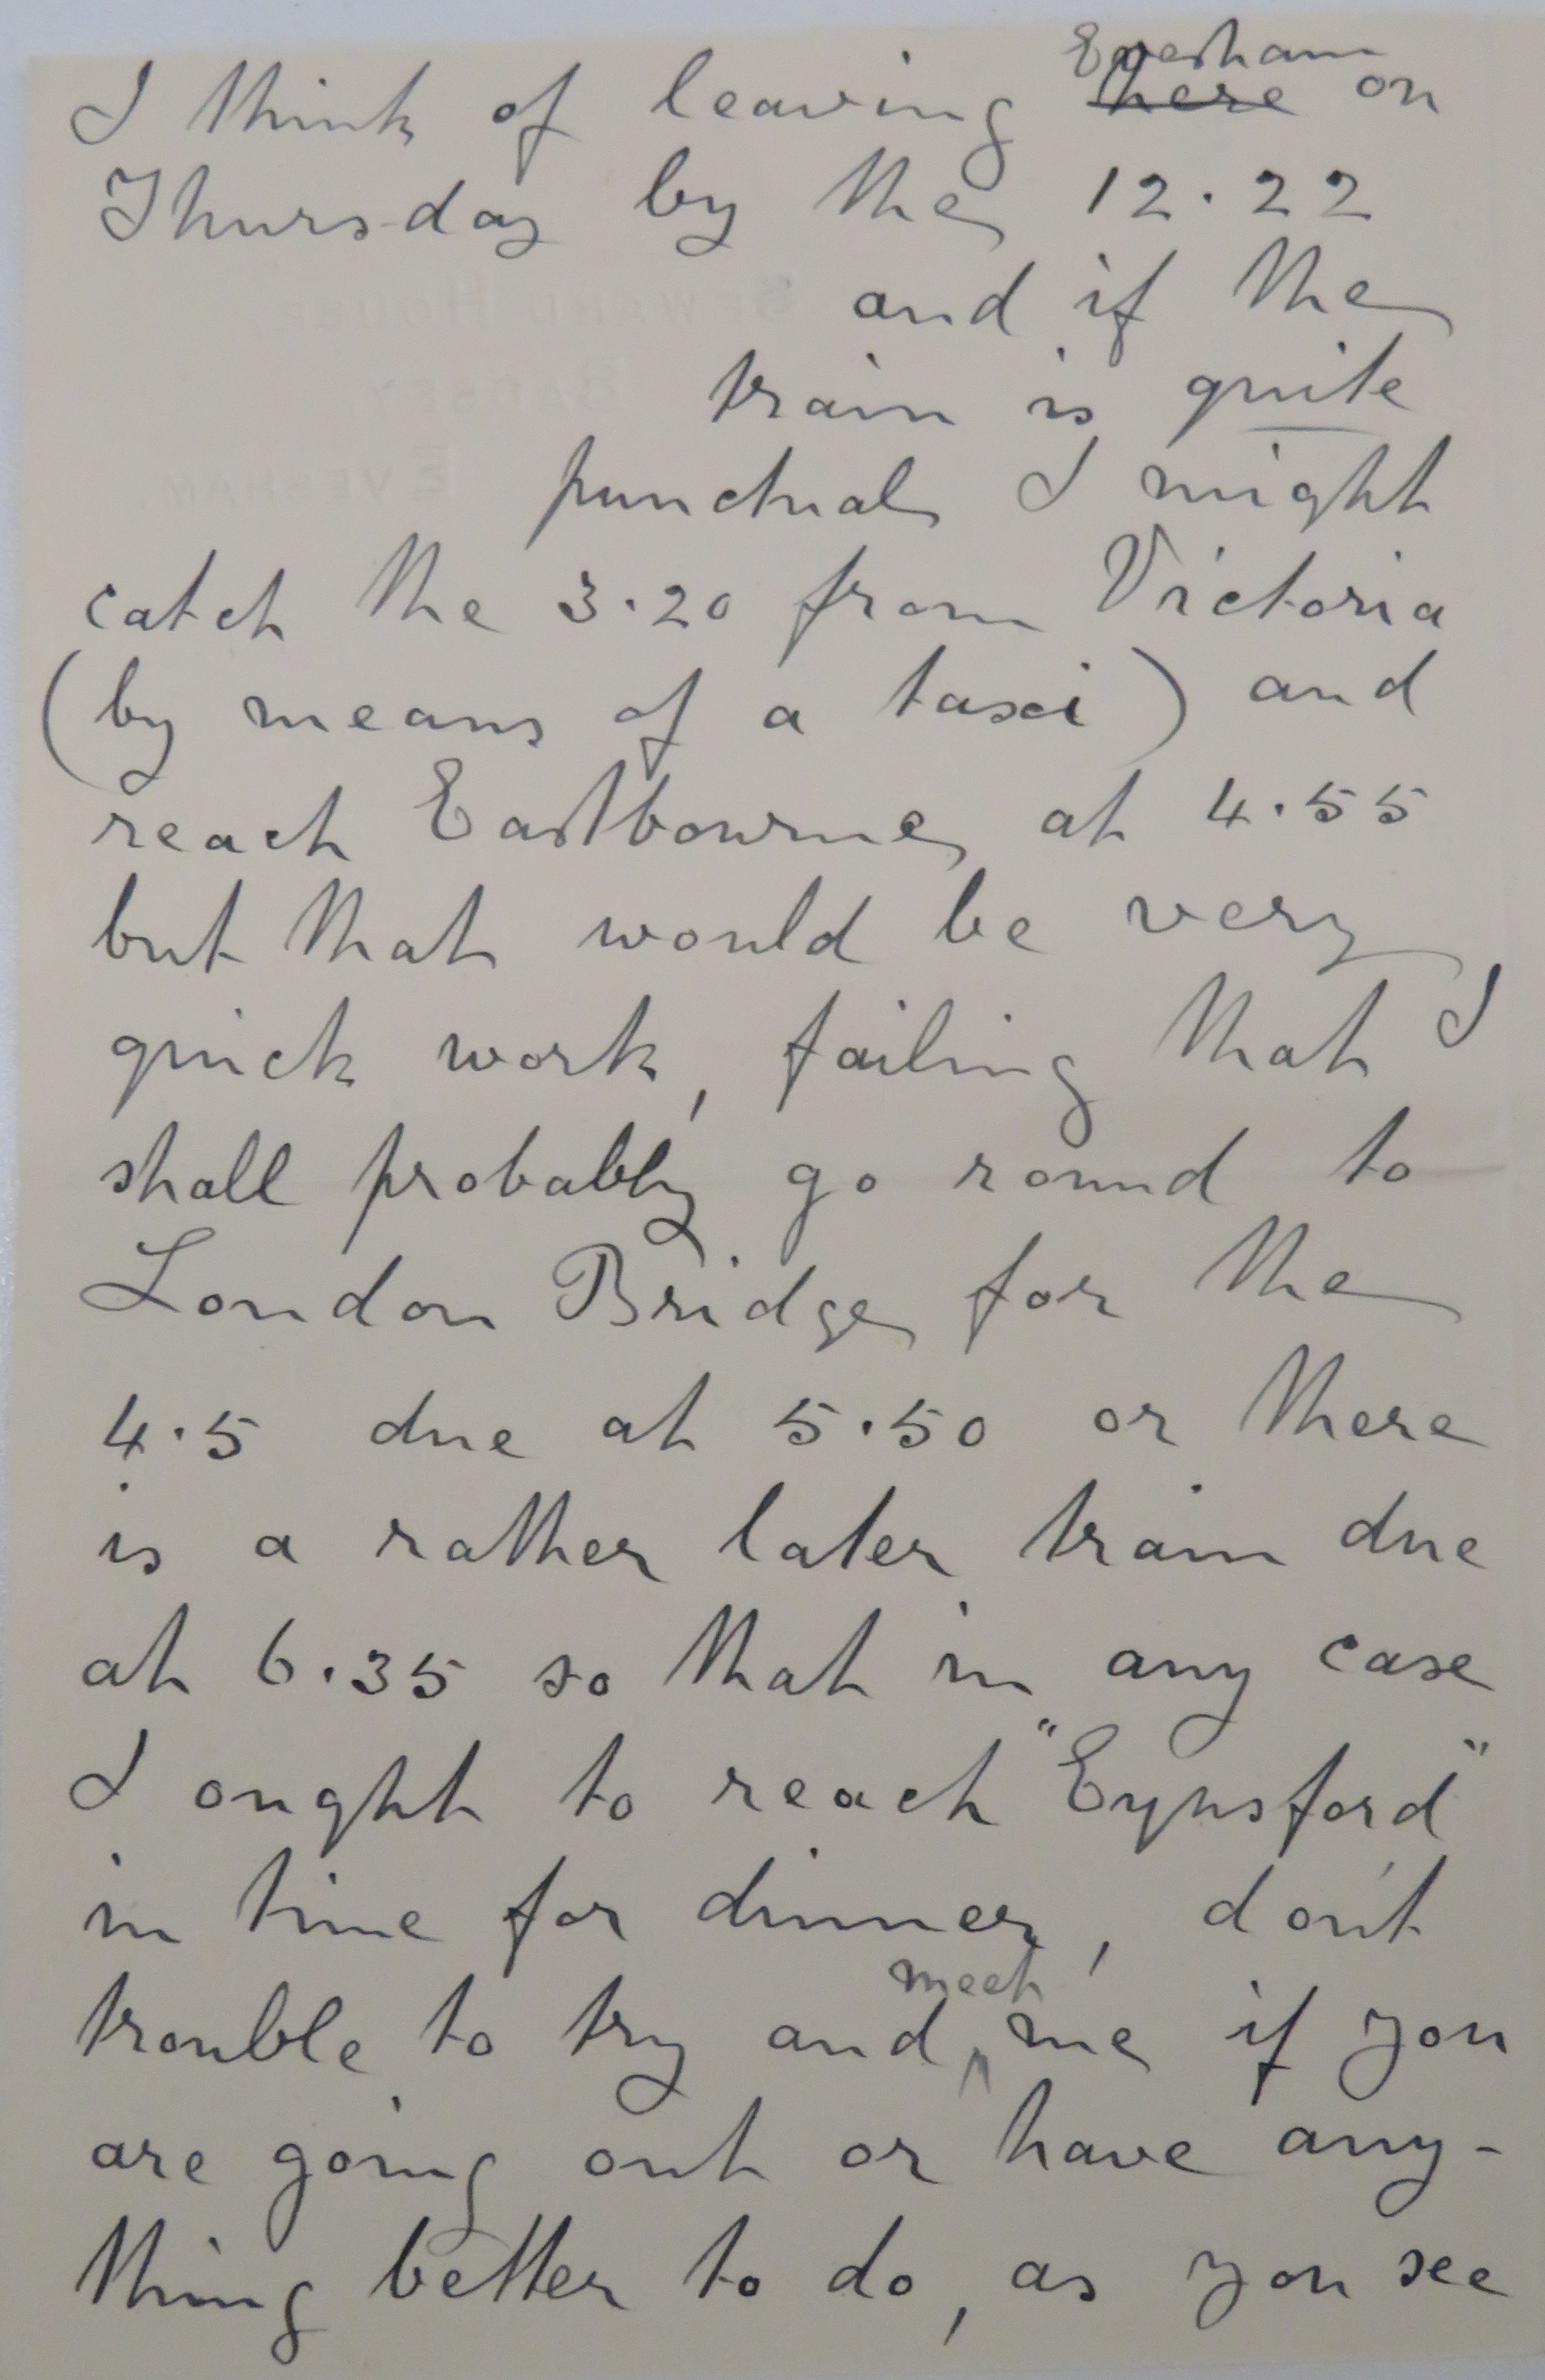 I think of leaving ~~here~~ Evesham on
Thursday by the 12.22
and if the
train is quite
punctual I might
catch the 3.20 from Victoria
(by means of a taxi) and
reach Eastbourne at 4.55
but that would be very
quick work, failing that I
shall probably go round to
London Bridge for the
4.5 due at 5.50 or there
is a rather later train due
at 6.35 so that in any case
I ought to reach "Eynsford"
in time for dinner, don't
trouble to try and meet me if you
are going out or have any-
thing better to do, as you see